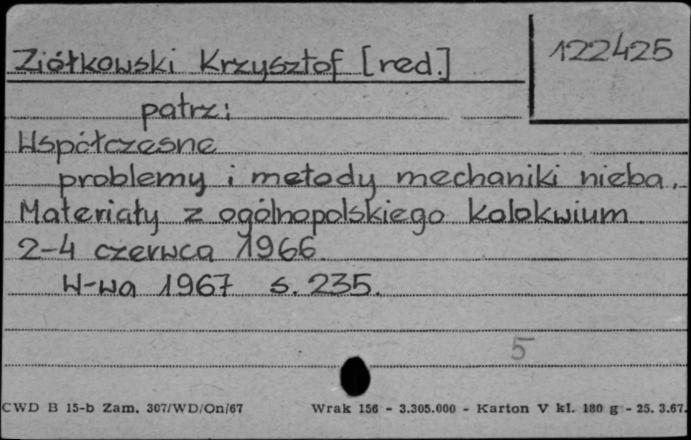 122425
Ziółkowski Krzysztof [red.]
patrz:
Współczesne
problemy i metody mechaniki nieba.
Materiały z ogólnopolskiego kolokwium
2-4 czerwca 1966.
W-wa 1967 s. 235.
5
CWD B 15-b Zam. 307/WD/On/67 Wrak 156 - 3.305.000 - Karton V kl. 180 g - 25. 3.67.